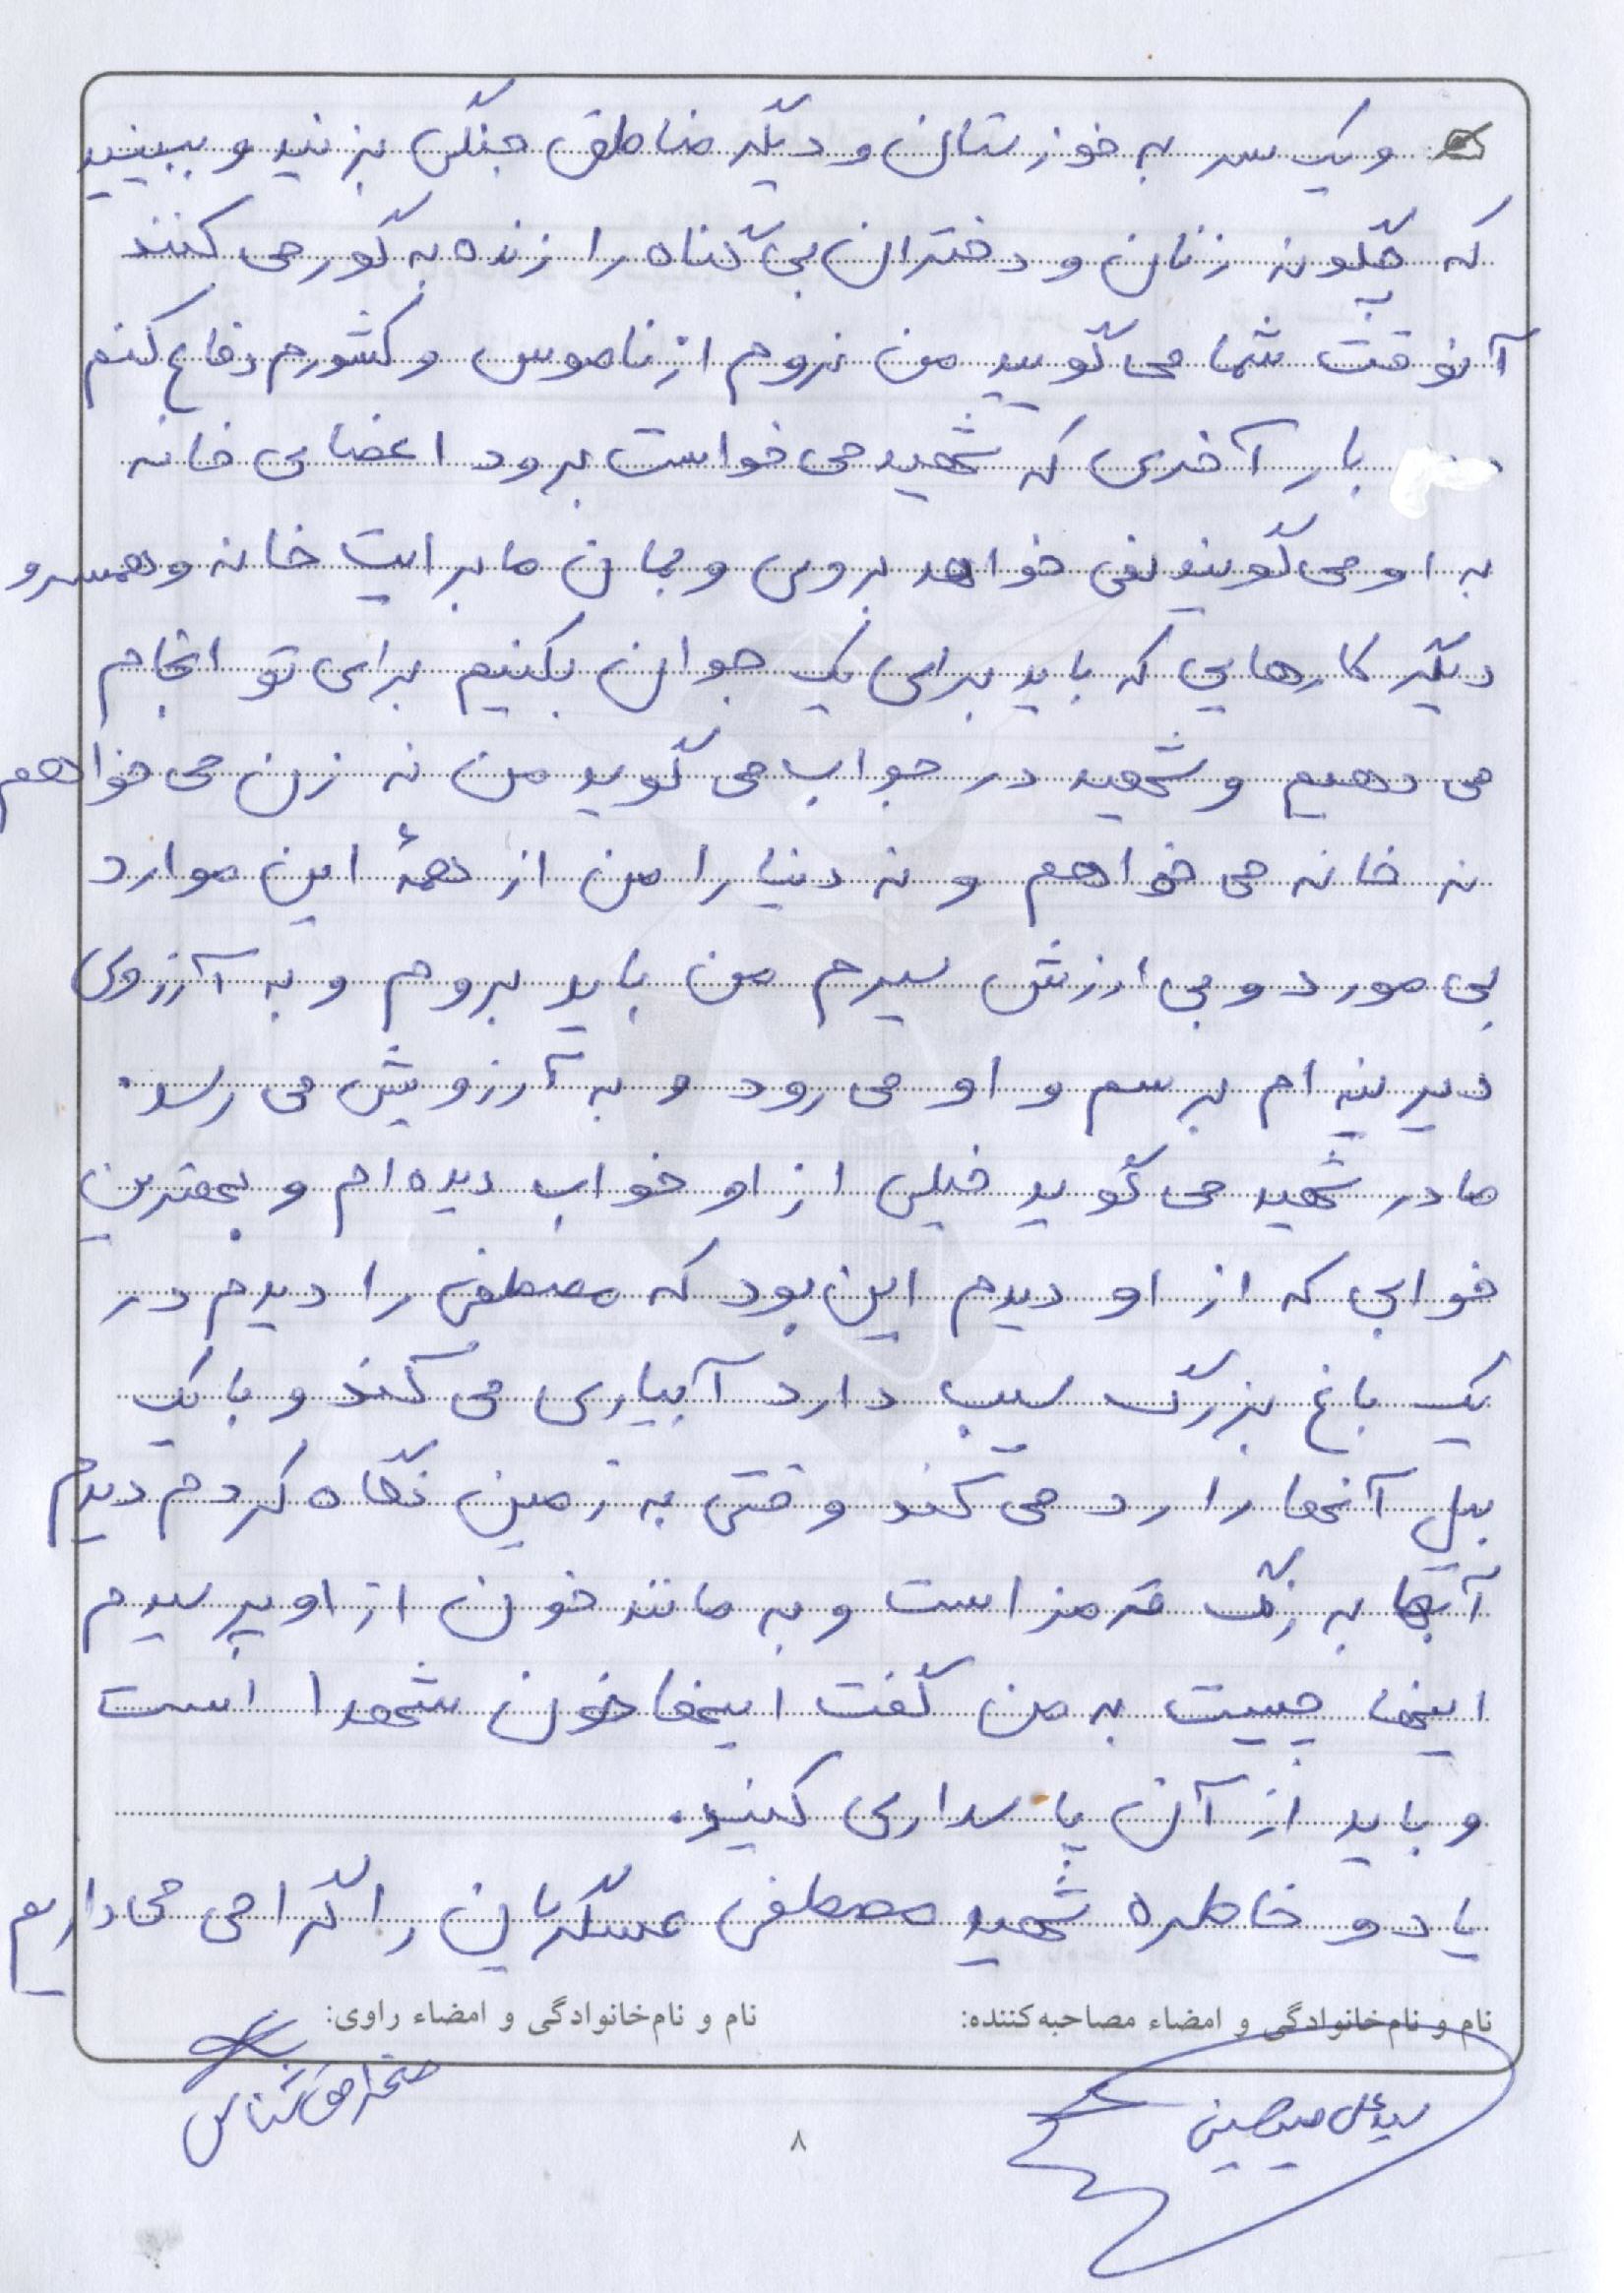 و یک سر به خوزستان و دیگر مناطق جنگی بزنید و ببینید
که چگونه زنان و دختران بی گناه را زنده به گور می کنند
آنوقت شما می گویید من نروم از ناموس و کشورم دفاع کنم
بار آخری که شهید می خواست برود اعضای خانه
به او می گویند نمی خواهد بروی و بمان ما برایت خانه و همسر و
دیگر کارهایی که باید برای یک جوان بکنیم برای تو انجام
می دهیم و شهید در جواب می گوید من نه زن می خواهم
نه خانه می خواهم و نه دنیا را من از همۀ این موارد
بی مورد و بی ارزش سیرم من باید بروم و به آرزوی
دیرینه ام برسم و او می رود و به آرزویش می رسد.
مادر شهید می گوید خیلی از او خواب دیده ام و بهترین
خوابی که از او دیدم این بود که مصطفی را دیدم در
یک باغ بزرگ سیب دارد آبیاری می کند و با یک
بیل آنها را رد می کند وقتی به زمین نگاه کردم دیدم
آبها به رنگ قرمز است و به مانند خون از او پرسیدم
اینها چیست به من گفت اینها خون شهدا است
و باید از آن پاسداری کنید.
یاد و خاطره شهید مصطفی عسگریان را گرامی می داریم
نام و نام‌خانوادگی و امضاء مصاحبه‌کننده:
نام و نام‌خانوادگی و امضاء راوی:
سید علی میرحسینی
۸